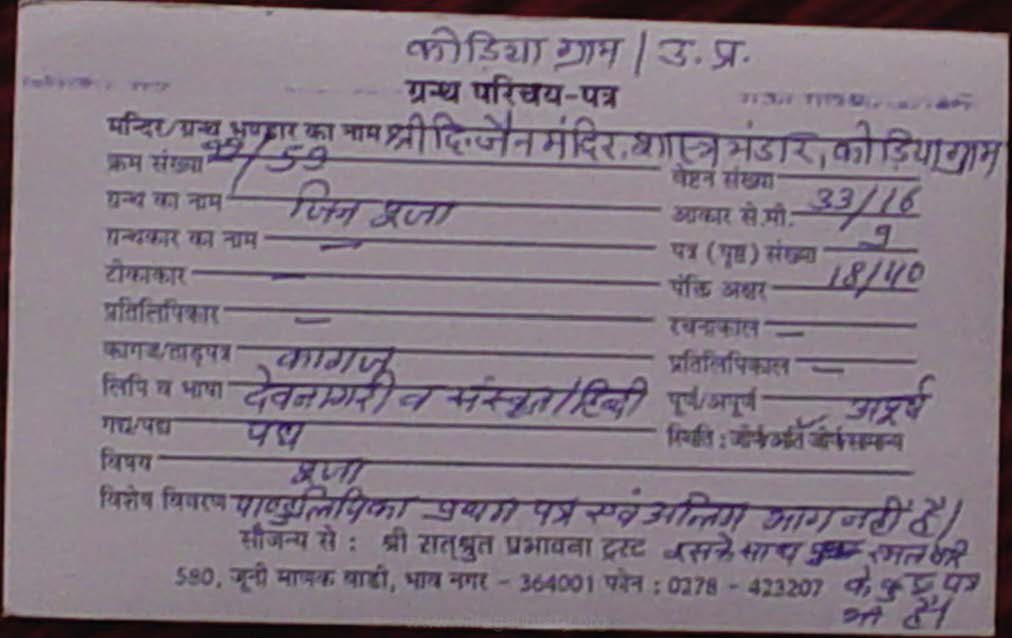 कोडिया ग्राम / उ. प्र.
ग्रन्थ परिचय-पत्र
मन्दिर/ग्रन्थ भण्डार का नाम श्री दि. जैन मंदिर, शास्त्र भंडार, कोडिया ग्राम
क्रम संख्या /59 वेष्टन संख्या
ग्रन्थ का नाम जिन पूजा आकार से.मी. 33/16
ग्रन्थकार का नाम — पत्र (पृष्ठ) संख्या 9
टीकाकार — पंक्ति अक्षर 18/40
प्रतिलिपिकार — रचनाकाल —
कागज/ताड़पत्र कागज प्रतिलिपिकाल —
लिपि व भाषा देवनागरी व संस्कृत/हिन्दी पूर्ण/अपूर्ण अपूर्ण
गद्य/पद्य पद्य स्थिति : जीर्ण/अति जीर्ण/सामान्य
विषय पूजा
विशेष विवरण पाण्डुलिपि का प्रथम पत्र एवं अन्तिम भाग नहीं है।
सौजन्य से : श्री सत्श्रुत प्रभावना ट्रस्ट इसके साथ
580, जूनी माणेक वाडी, भाव नगर - 364001 फोन : 0278 - 423207 के कुछ पत्र
भी हैं।